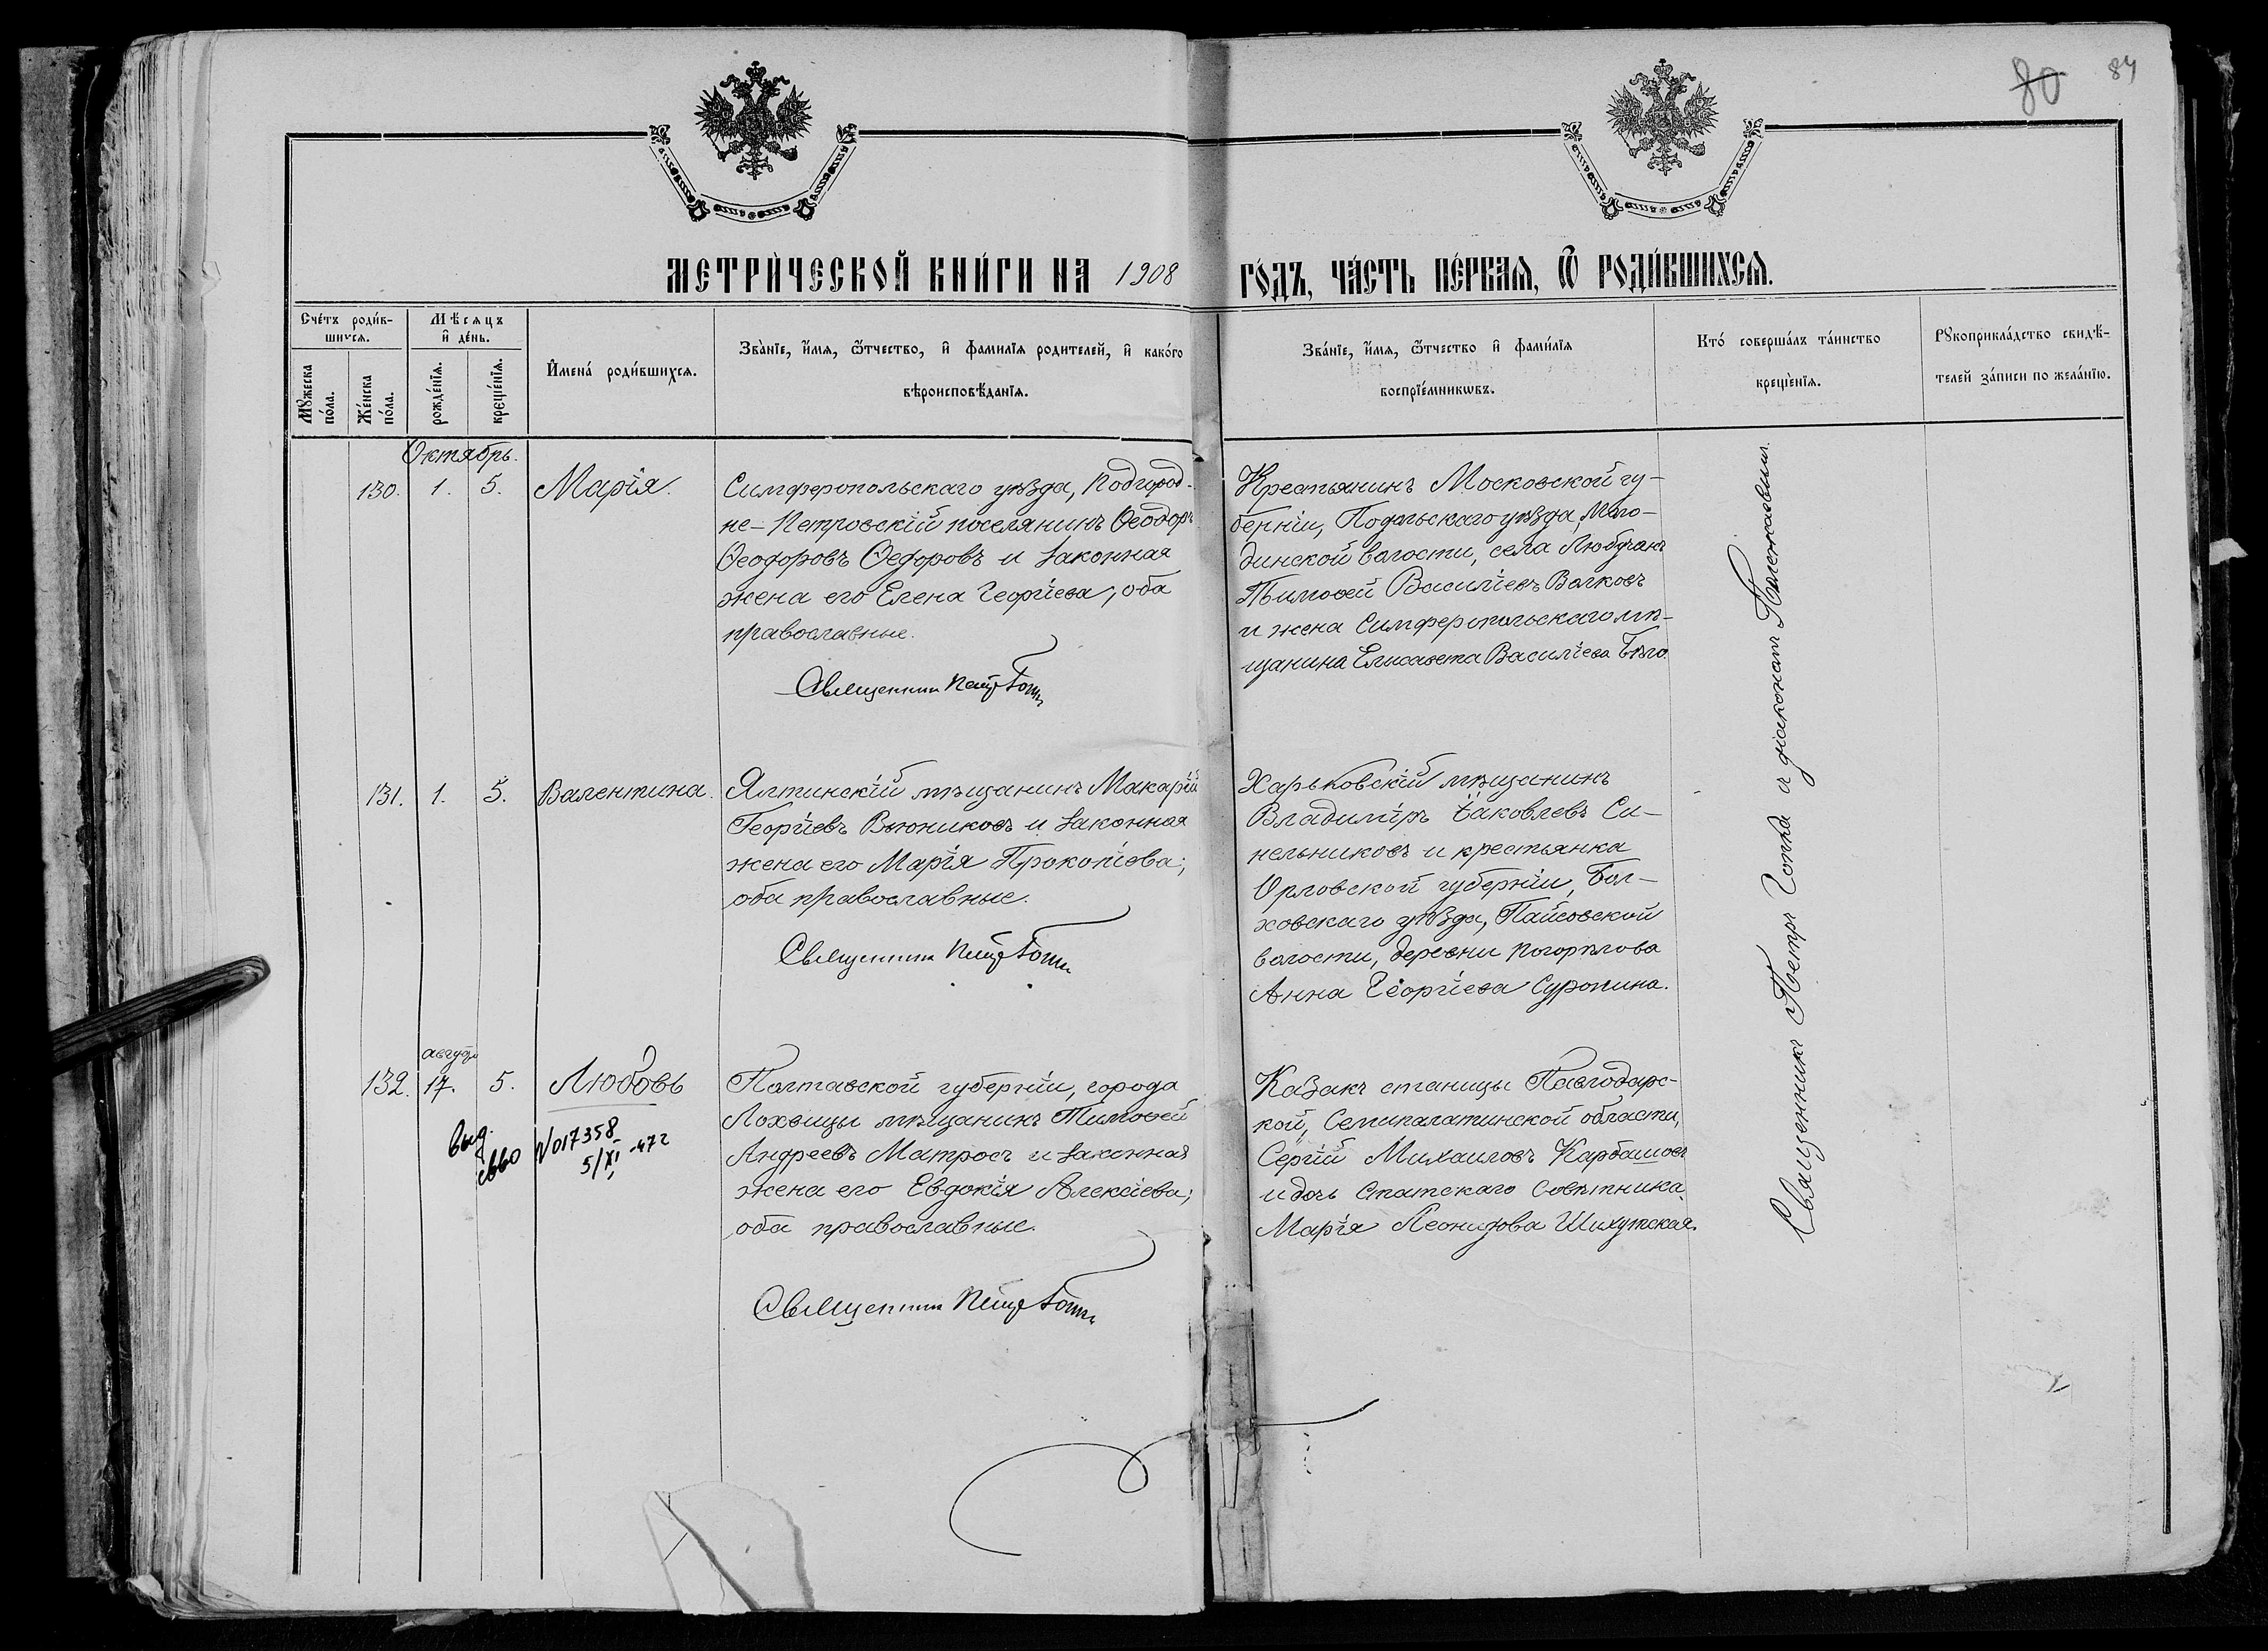 80 84
МЕТРИ́ЧЕСКОЙ КНИ́ГИ НА 1908 ГО́ДЪ, ЧА́СТЬ ПЕ́РВАЯ, Ѿ РОДИ́ВШИХСЯ.
Сче́тъ роди́в-
шихся.
Му́жеска
по́ла.
Же́нска
по́ла.
Мѣ́сяцъ
и̂ де́нь.
рожде́нїя.
креще́нїя.
И̂мена́ роди́вшихся.
Зва́нїе, и́мя, ѻ́тчество, и̂ фами́лїя родителей, и̂ како́го
вѣроисповѣ́данїя.
Зва́нїе, и́мя, ѻ́тчество и̂ фами́лїя
воспрїе́мникѡвъ.
Кто́ соверша́лъ та́инство
креще́нїя.
Рꙋкоприкла́дство свидѣ́-
телей за́писи по жела́нїю.
Октябрь.
130. 1. 5. Марія.
Симферопольскаго уѣзда, Подгород-
не-Петровскій поселянинъ Ѳеодоръ
Ѳеодоровъ Ѳедоровъ и законная
жена его Елена Георгіева, оба
православные.
Священникъ Петръ
Крестьянинъ Московской гу-
берніи, Подольскаго уѣзда, Моло-
динской волости, села Любучанъ
Тимоѳей Василіевъ Волковъ
и жена Симферопольскаго мѣ-
щанина Елисавета Василіева
131. 1. 5. Валентина.
Ялтинскій мѣщанинъ Макарій
Георгіевъ Вьюниковъ и законная
жена его Марія Прокопіева;
оба православные.
Священникъ Петръ
Харьковскій мѣщанинъ
Владиміръ Іаковлевъ Си-
нельниковъ и крестьянка
Орловской губерніи, Бол-
ховскаго уѣзда, Пайсовской
волости, деревни Погорѣлова
Анна Георгіева Суропина.
август
132. 17. 5. Любовь
выд.
сво №017358
5/XI 472
Полтавской губерніи, города
Лохвицы мѣщанинъ Тимоѳей
Андреевъ Матросъ и законная
жена его Евдокія Алексіева;
оба православные.
Священникъ Петръ
Казакъ станицы Павлодарс-
кой, Семипалатинской области,
Сергій Михаиловъ Карбашовъ
и дочь Статскаго Совѣтника
Марія Леонидова Шихутская.
Священникъ Петръ и діаконъ